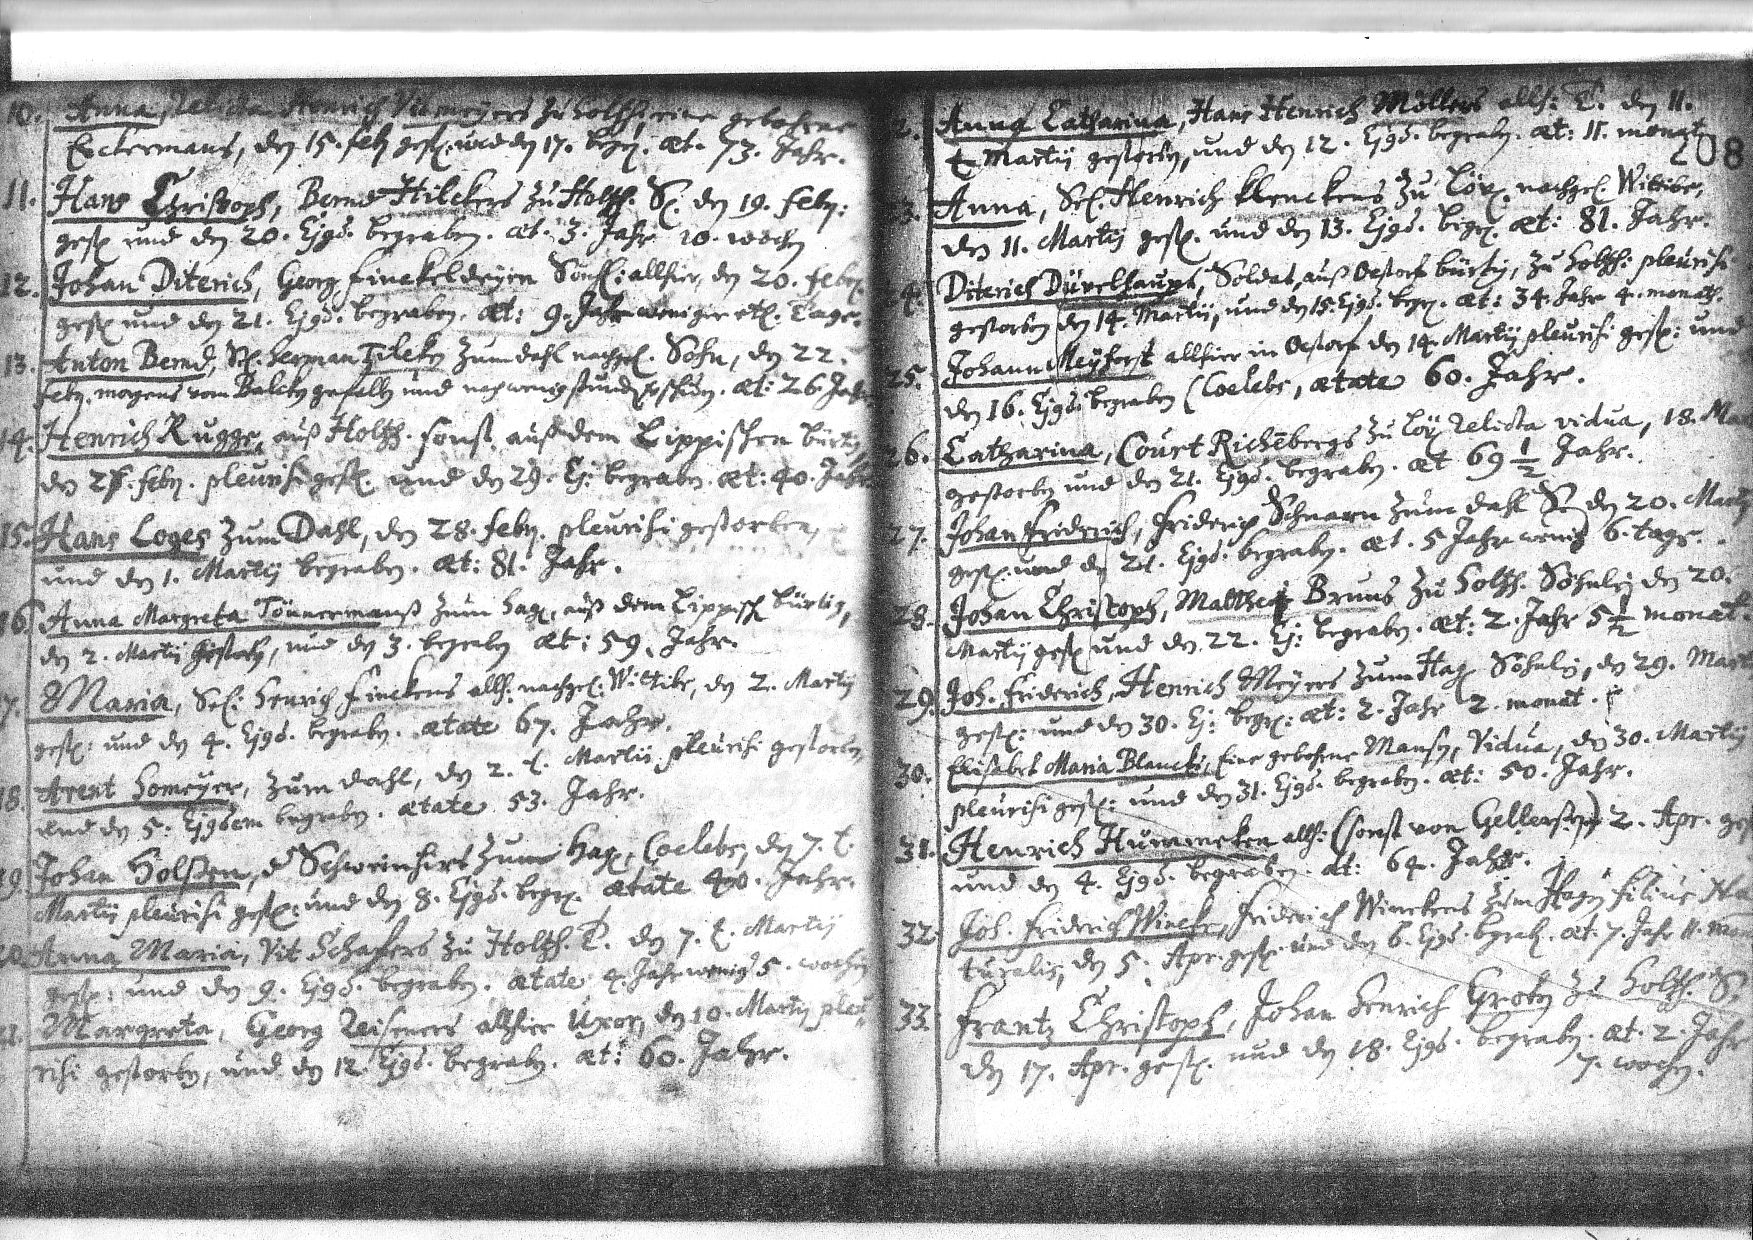 10. Anna, relicta Henrich Vitmeyers zu Holtzh. eine gebohrne
Eckermans, den 15. Feb. gest. und den 17. begr. æt. 73. Jahr.
11. Hans Christoph, Bernd Hilekers zu Holtzh. S. den 19. Febr.
gest. und den 20. Ejsd. begraben. æt. 3. Jahr 10. wochen
12. Johan Diterich, Georg Finckeldeyen Söhnl. allhier, den 20. Febr.
gest. und den 21. Ejsd. begraben. æt: 9. Jahr weniger etl. Tage.
13. Anton Bernd, Sel. Herman Tileken zum Dahl nachgel. Sohn, den 22.
Febr. morgens vom Balcken gefallen und nach wenig stunden verschieden. æt: 26. Jahr
14. Henrich Rugge, auß Holtzh. sonst auß dem Lippischen bürtig,
den 28. Febr. pleurisi gest. und den 29. Ej: begraben. æt: 40. Jahr
15. Hans Loges zum Dahl, den 28. Febr. pleurisi gestorben,
und den 1. Martij begraben. æt: 81. Jahr.
16. Anna Margreta Tönnermanß zum Hag., auß dem Lippisch. bürtig,
den 2. Martij gestorben, und den 3. begraben æt: 59. Jahr.
17. Maria, Sel. Henrich Finckens allh. nachgel. Wittibe, den 2. Martij
gest: und den 4. Ejsd. begraben. ætate 67. Jahr.
18. Arent Homeyer, zum Dahl, den 2. t. Martij pleurisi gestorben,
und den 5. Ejsdem begraben. ætate 53. Jahr.
19. Johan Holsten, d Schweinhirt zum Hag., Coelebs, den 7. t.
Martij pleurisi gest: und den 8. Ejsd. begr. ætate 40. Jahr.
20. Anna Maria, Vit Schafers zu Holtzh. T. den 7. t. Martij
gest: und den 9. Ejsd. begraben. ætate 4. Jahr wenig 5. wochen
21. Margreta, Georg Reiseners allhier Uxor, den 10. Martij pleu-
risi gestorben, und den 12. Ejsd. begraben. æt: 60. Jahr.
208
2. Anna Catharina, Hans Henrich Möllers allh: T. den 11.
t. Martij gestorben, und den 12. Ejsd. begraben. æt: 11. monat
3. Anna, Sel. Henrich Klenckens zu Löx. nachgel. Wittibe,
den 11. Martij gest. und den 13. Ejsd. begr. æt: 81. Jahr.
4. Diterich Düvelshaupt, Soldat, auß Oestorf bürtig, zu Holtzh: pleurisi
gestorben den 14. Martij, und den 15. Ejsd. begr. æt: 34. Jahr 4. monath.
25. Johann Meyherst allhier in Oestorf den 14. Martij pleurisi gest: und
den 16. Ejsd. begraben (Coelebs, ætate 60. Jahr.
26. Catharina, Court Richebergs zu Löx relicta vidua, 18. Mart
gestorben und den 21. Ejsd. begraben. æt 69 1/2 Jahr.
27. Johan Friderich, Friderich Schnarn zum Dahl S. den 20. Martij
gest. und den 21. Ejsd. begraben. æt. 5 Jahr wenig 6. tage.
28. Johan Christoph, Matthei Bruns zu Holtzh. Söhnlein den 20.
Martij gest. und den 22. Ej: begraben. æt: 2. Jahr 5 1/2 monat.
29. Joh. Friderich, Henrich Meyers zum Hag. Söhnlein, den 29. Marti
gest: und den 30. Ej: begr: æt: 2. Jahr 2. monat.
30. Elisabet Maria Blancke, Eine gebohrne Mansen, Vidua, den 30. Martij
pleurisi gest: und den 31. Ejsd. begraben. æt: 50. Jahr.
31. Henrich Hummeken allh: (sonst von Gellersen) 2. Apr. gest
und den 4. Ejsd. begraben. æt: 64. Jahr.
32. Joh. Friderich Wincke, Friderich Winckens zum Hagen filius Na-
turalis, den 5. Apr. gest. und den 6. Ejsd. begrab. æt. 7. Jahr 11. mon
33. Frantz Christoph, Johan Henrich Groten zu Holtzh. S.
den 17. Apr. gest. und den 18. Ejsd. begraben. æt. 2. Jahr
7. wochen.